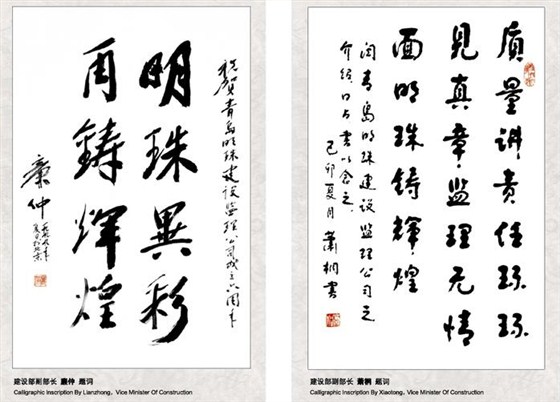 祝贺青岛明珠建设监理公司成立六周年
明珠異彩
再鑄輝煌
廉仲
建设部副部长 廉仲 题词
Calligraphic Inscription By Lianzhong, Vice Minister Of Construction
质量讲责任环环
见真章监理无情
面明珠铸辉煌
闻青岛明珠建设监理公司之
介绍口占书以念之
己卯夏月 萧桐书
建设部副部长 萧桐 题词
Calligraphic Inscription By Xiaotong, Vice Minister Of Construction